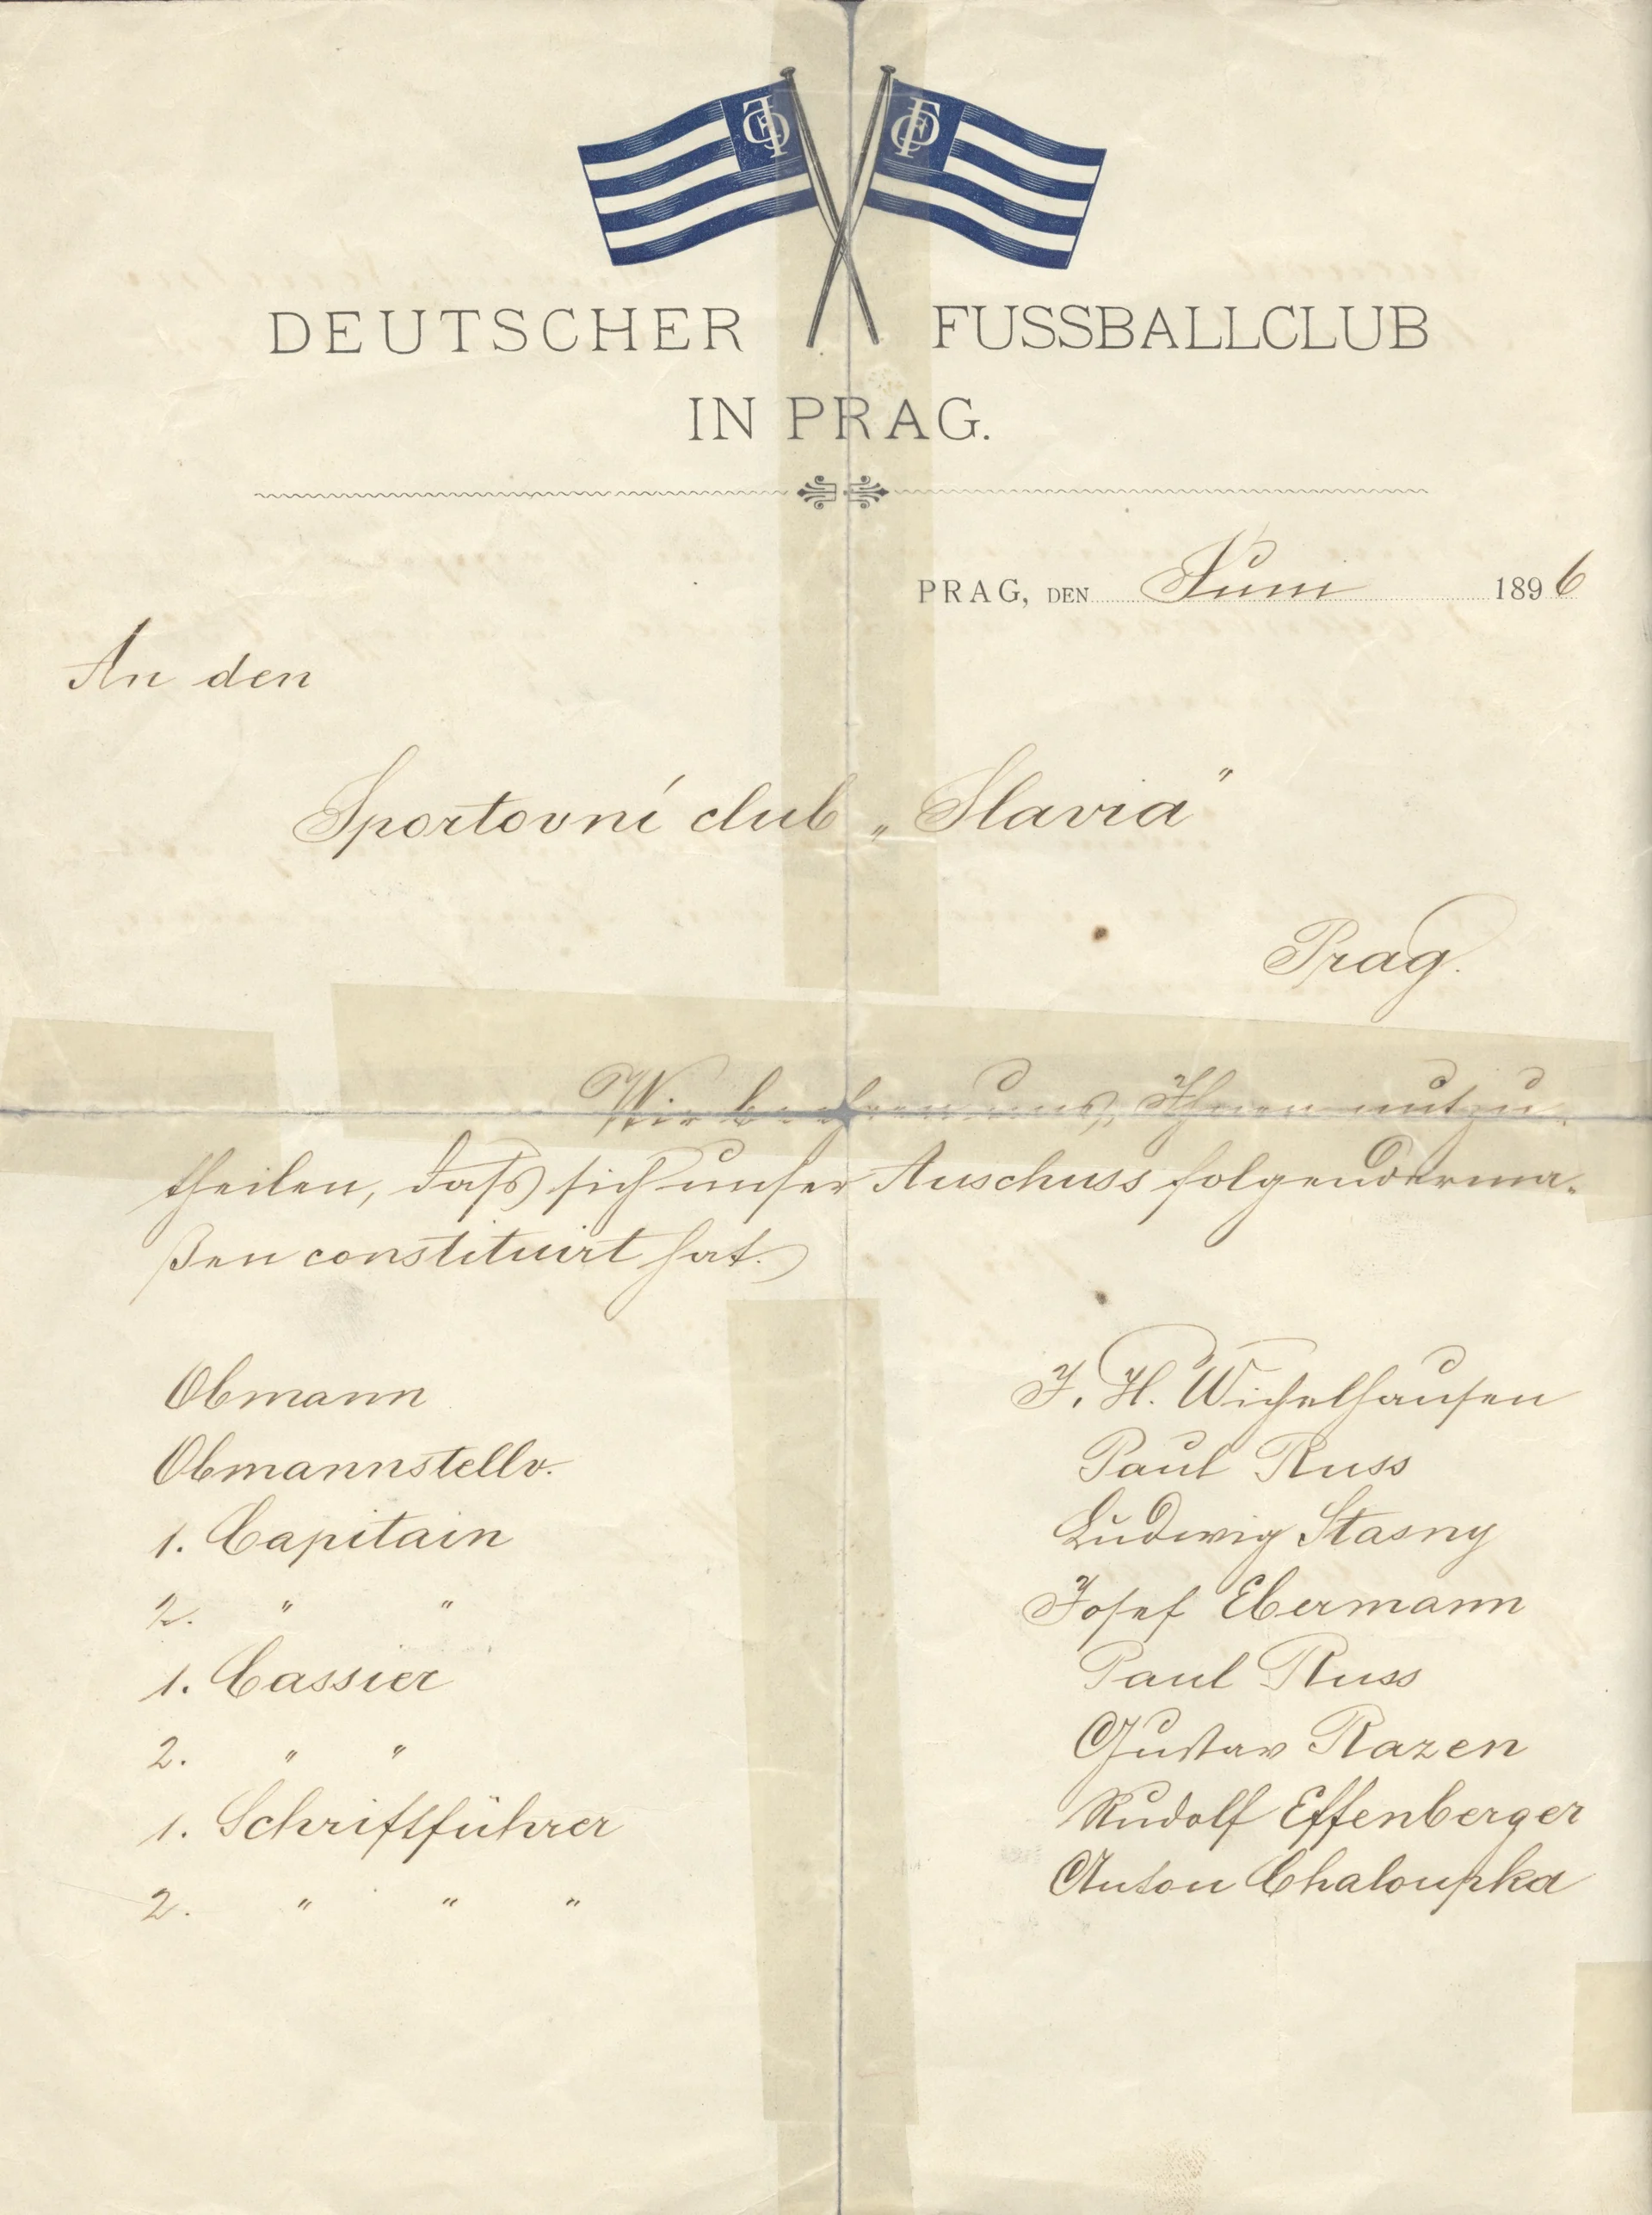 DEUTSCHER FUSSBALLCLUB
IN PRAG.
PRAG, DEN Juni 1896
An den
Sportovní club „Slavia"
Prag.
Wir beehren uns, Ihnen mitzu
theilen, dass sich unser Auschuss folgenderma-
ßen constituirt hat.
Obmann J. H. Wichelhausen
Obmannstellv. Paul Russ
1. Capitain Ludwig Stasny
2. " " Josef Ebermann
1. Cassier Paul Russ
2. " " Gustav Razen
1. Schriftführer Rudolf Effenberger
2. " " " Anton Chaloupka